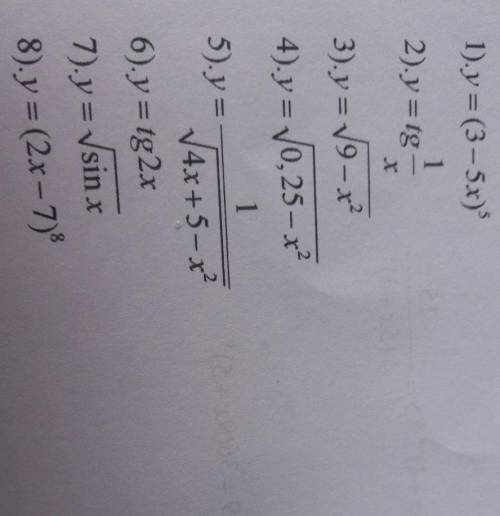 1).y = (3 − 5x)⁵
2).y = tg 1/x
3).y = √(9 − x²)
4).y = √(0,25 − x²)
5).y = 1/√(4x + 5 − x²)
6).y = tg2x
7).y = √(sin x)
8).y = (2x − 7)⁸